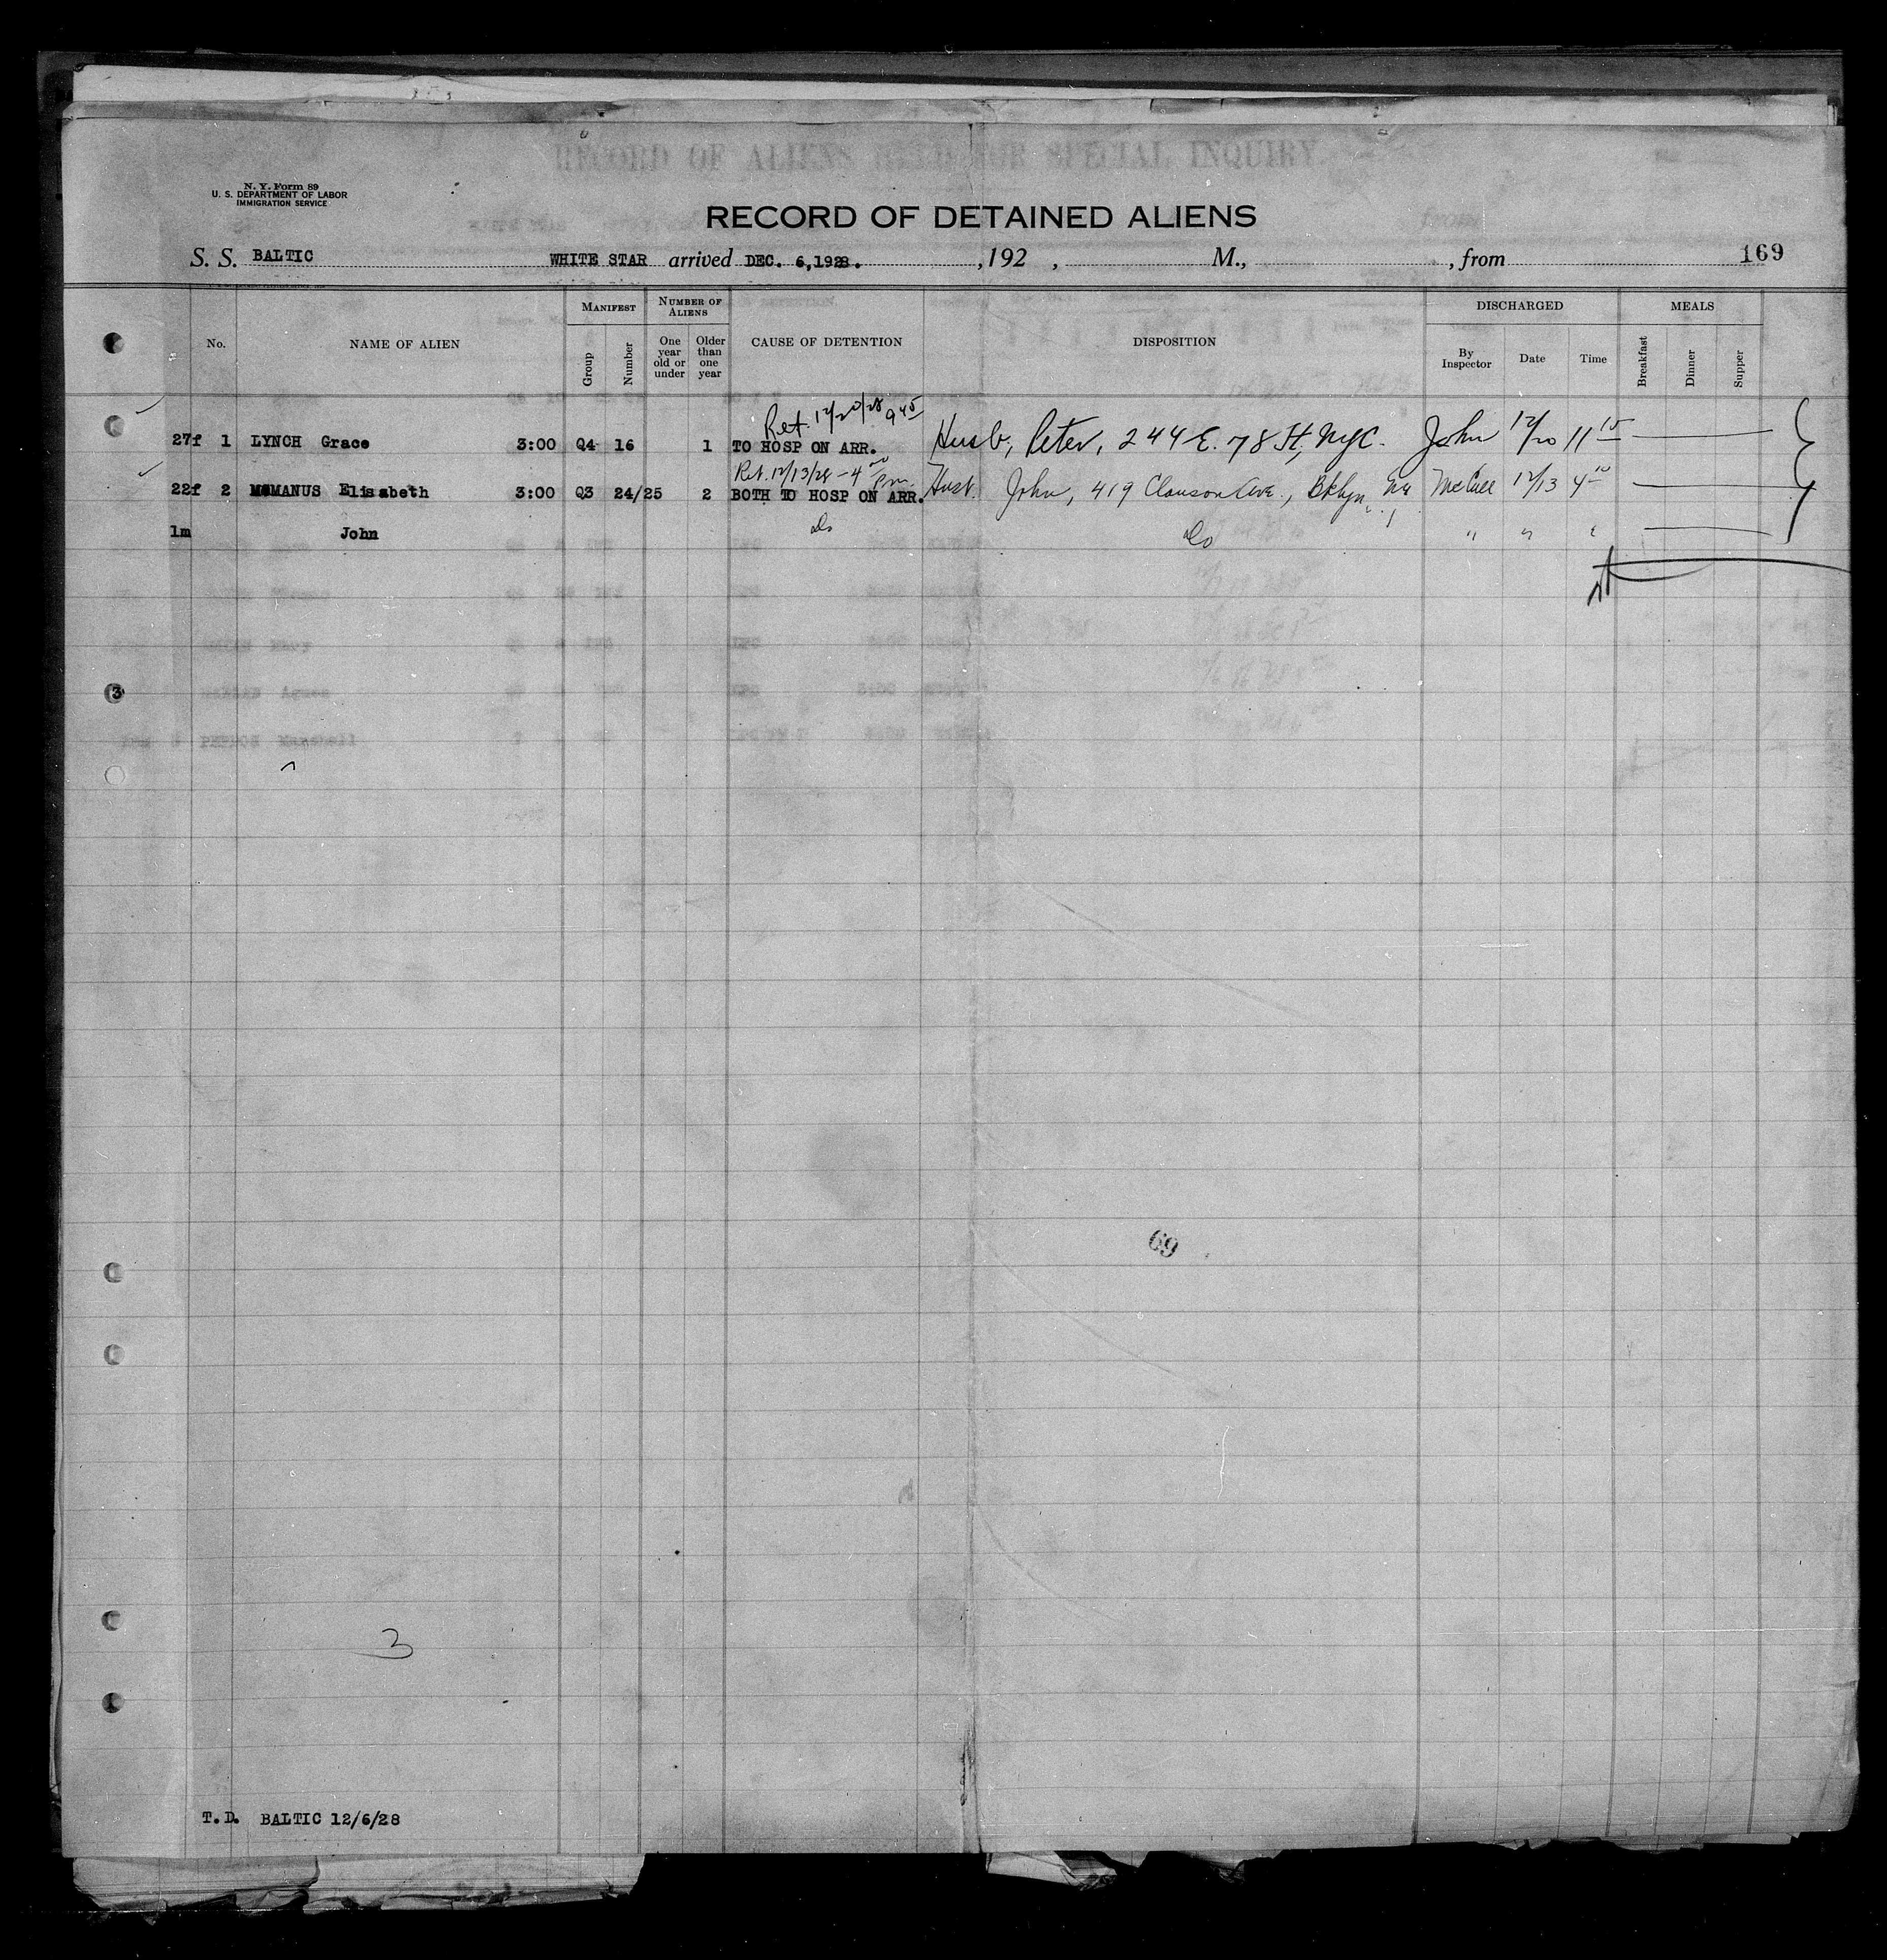 RECORD OF ALIENS HELD FOR SPECIAL INQUIRY
N. Y. Form 89
U. S. DEPARTMENT OF LABOR
IMMIGRATION SERVICE
RECORD OF DETAINED ALIENS
S. S. BALTIC WHITE STAR arrived DEC. 6,1928. ,192 , M., , from 169
No. NAME OF ALIEN MANIFEST Group Number NUMBER OF ALIENS One year old or under Older than one year CAUSE OF DETENTION DISPOSITION DISCHARGED By Inspector Date Time MEALS Breakfast Dinner Supper
Ret. 12/20/28 9 45
27f 1 LYNCH Grace 3:00 Q4 16 1 TO HOSP ON ARR. Husb, Peter, 244 E. 78 St, NYC. John 12/20 11 15
Ret. 12/13/28 - 4 00 pm.
22f 2 MCMANUS Elisabeth 3:00 Q3 24/25 2 BOTH TO HOSP ON ARR. Husb. John, 419 Ave., Bklyn, NY McCall 12/13 4 10
1m John Do Do " " "
3
PEPDOE Marshell
69
3
T.D. BALTIC 12/6/28